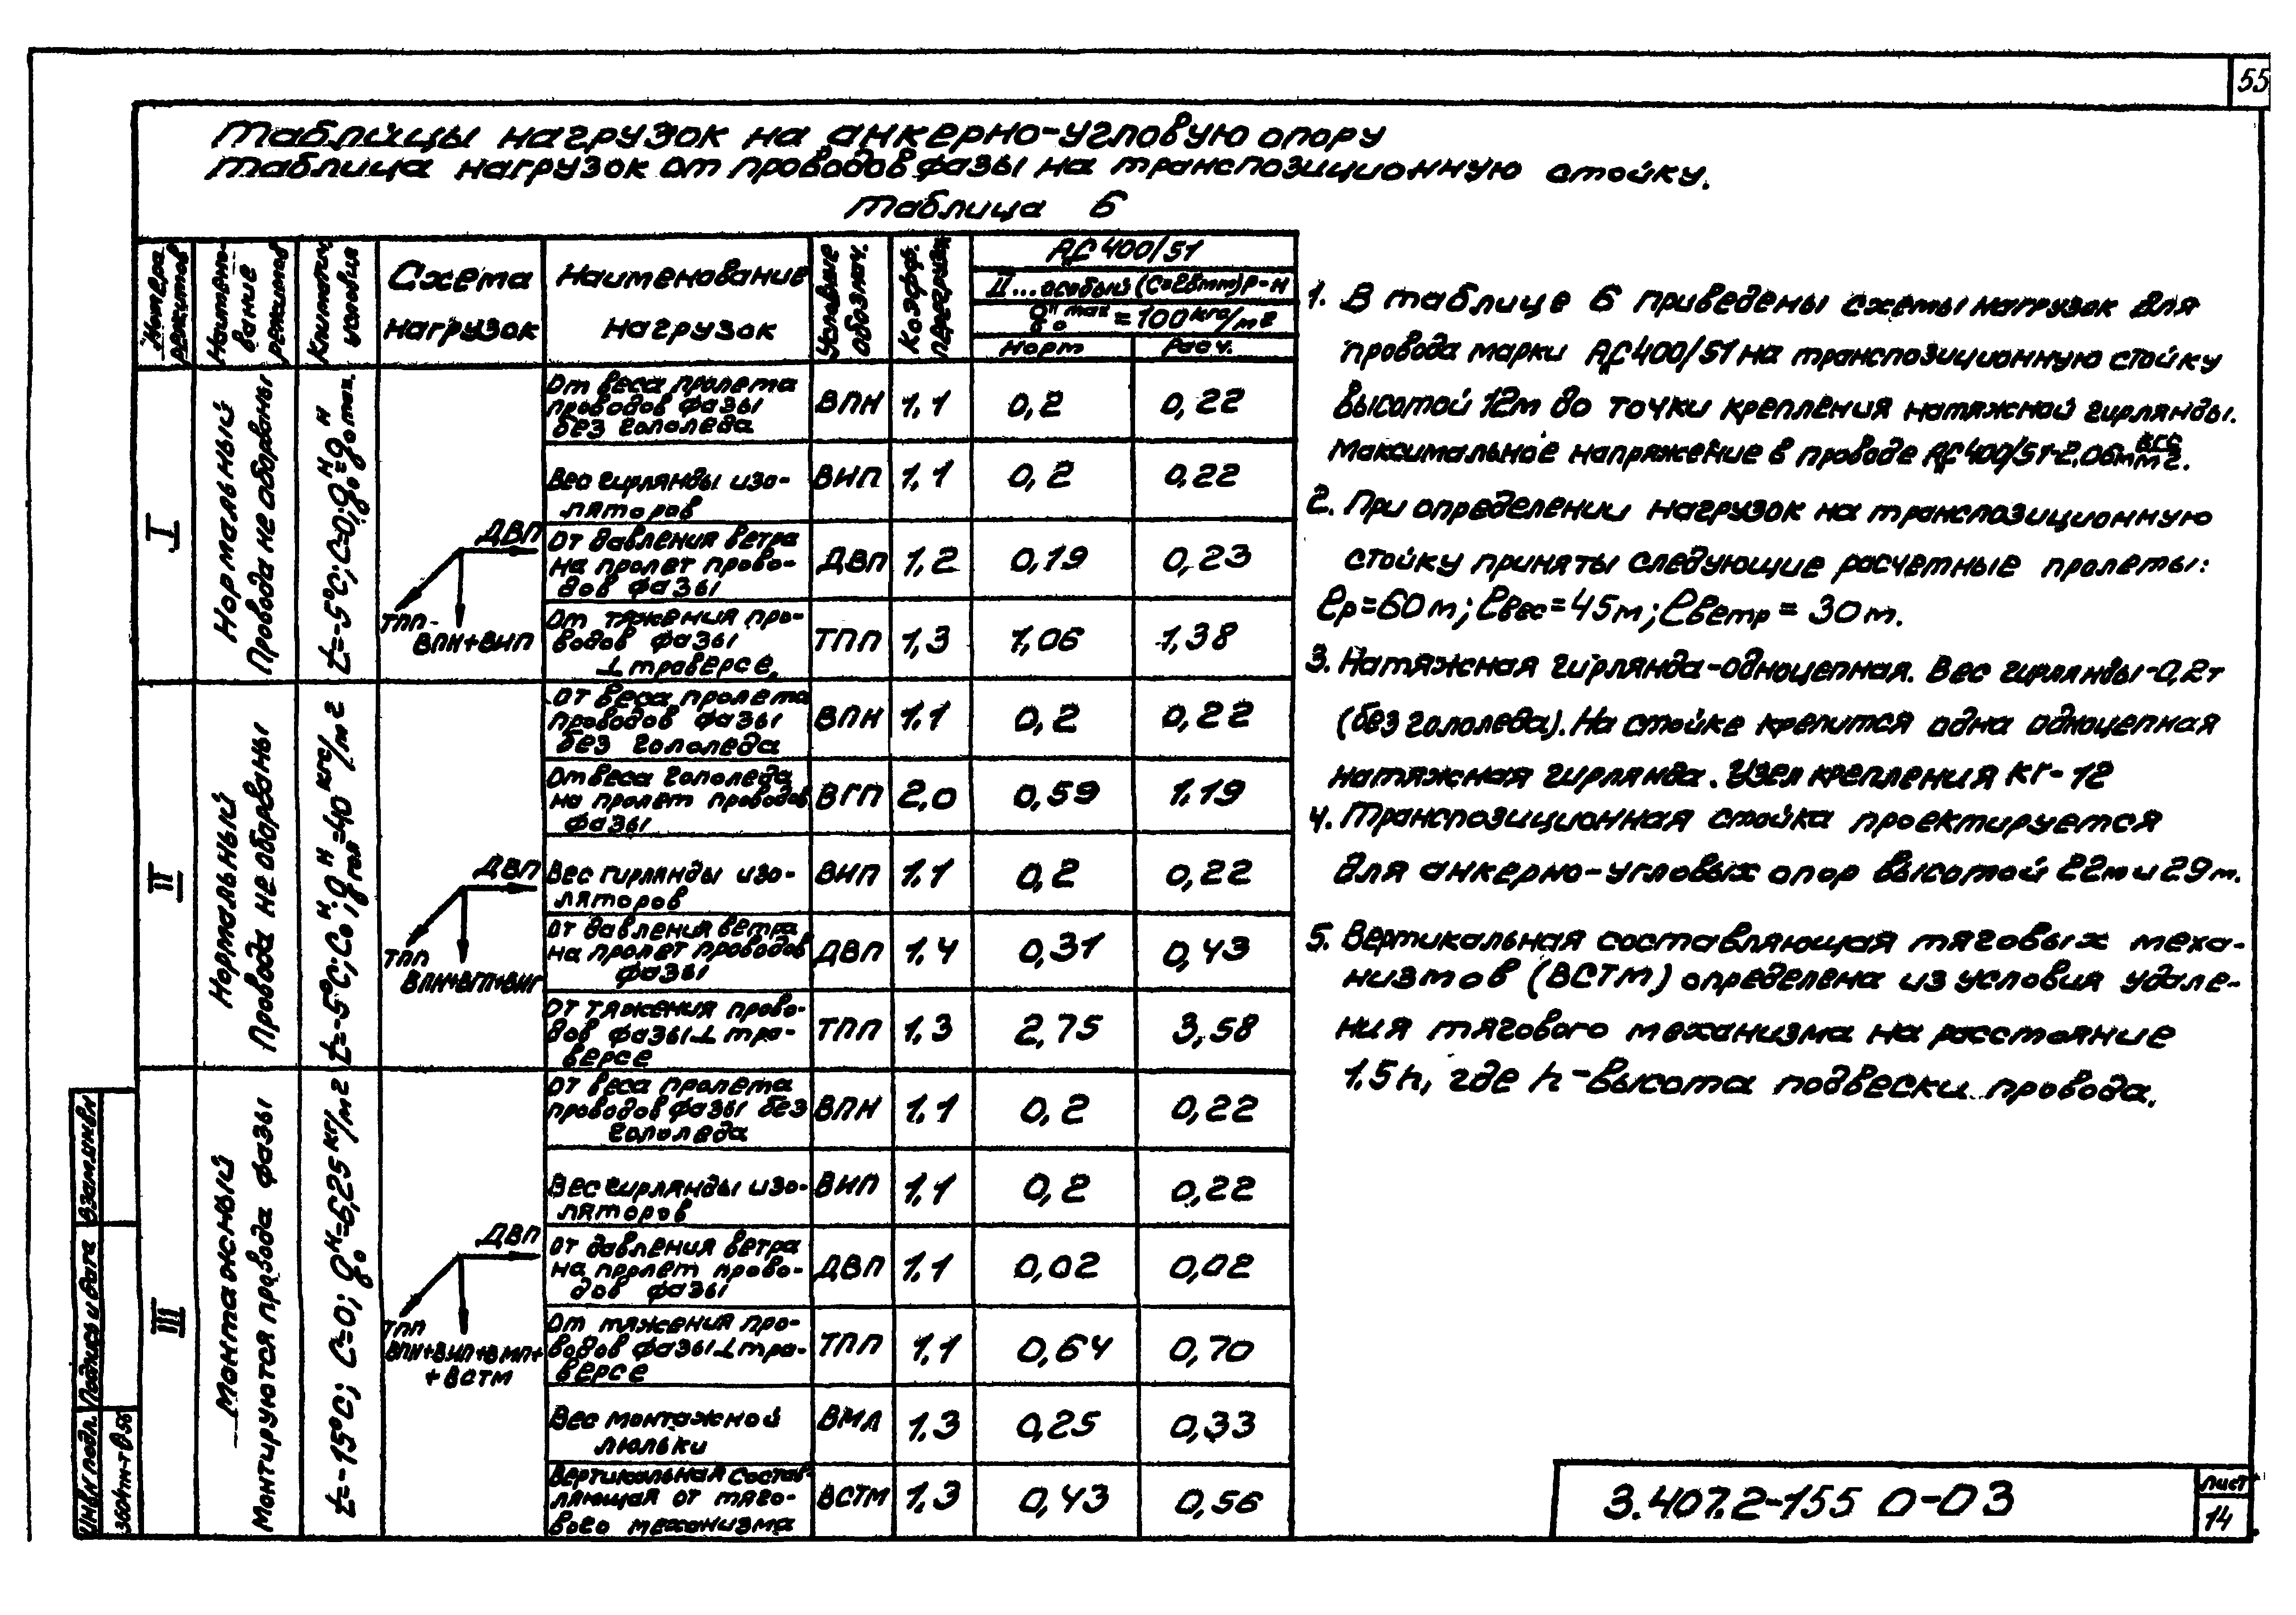 55
Таблицы нагрузок на анкерно-угловую опору
Таблица нагрузок от проводов фазы на транспозиционную стойку.
Таблица 6
Номера режимов
Наименование режимов
Климатич. условия
Схема нагрузок
Наименование нагрузок
Условные обознач.
Коэфф. перегрузки
АС 400/51
II...особый (С=28мм) Р-Н
q₀ᴴ max = 100 кгс/м²
Норм
Расч.
I
Нормальный
Провода не оборваны
t=-5°C; C=0; q₀ᴴ=q₀ᴴ max.
ДВП
ТПП-
ВПН+ВИП
От веса пролета проводов фазы без гололеда ВПН 1,1 0,2 0,22
Вес гирлянды изо-ляторов ВИП 1,1 0,2 0,22
От давления ветра на пролет прово-дов фазы ДВП 1,2 0,19 0,23
От тяжения про-водов фазы ⊥ траверсе. ТПП 1,3 1,06 1,38
II
Нормальный
Провода не оборваны
t=-5°C; C₀ᴴ; qᴴгол=40 кгс/м²
ДВП
ТПП
ВПН+ВГП+ВИГ
От веса пролета проводов фазы без гололеда ВПН 1,1 0,2 0,22
От веса гололеда на пролет проводов фазы ВГП 2,0 0,59 1,19
Вес гирлянды изо-ляторов ВИП 1,1 0,2 0,22
От давления ветра на пролет проводов фазы ДВП 1,4 0,31 0,43
От тяжения прово-дов фазы ⊥ тра-версе ТПП 1,3 2,75 3,58
III
Монтажный
Монтируются провода фазы
t=-15°C; C=0; q₀ᴴ=6,25 кг/м²
ДВП
ТПП
ВПН+ВИП+ВМЛ+
+ВСТМ
От веса пролета проводов фазы без гололеда ВПН 1,1 0,2 0,22
Вес гирлянды изо-ляторов ВИП 1,1 0,2 0,22
От давления ветра на пролет прово-дов фазы ДВП 1,1 0,02 0,02
От тяжения про-водов фазы ⊥ тра-версе ТПП 1,1 0,64 0,70
Вес монтажной люльки ВМЛ 1,3 0,25 0,33
Вертикальная состав-ляющая от тяго-вого механизма ВСТМ 1,3 0,43 0,56
1. В таблице 6 приведены схемы нагрузок для
провода марки АС400/51 на транспозиционную стойку
высотой 12м до точки крепления натяжной гирлянды.
Максимальное напряжение в проводе АС400/51-2,06 кгс/мм².
2. При определении нагрузок на транспозиционную
стойку приняты следующие расчетные пролеты:
ℓр=60м; ℓвес=45м; ℓветр=30м.
3. Натяжная гирлянда-одноцепная. Вес гирлянды-0,2т
(без гололеда). На стойке крепится одна одноцепная
натяжная гирлянда. Узел крепления КГ-12
4. Транспозиционная стойка проектируется
для анкерно-угловых опор высотой 22м и 29м.
5. Вертикальная составляющая тяговых меха-
низмов (ВСТМ) определена из условия удале-
ния тягового механизма на расстояние
1.5h, где h-высота подвески провода.
Взам.инв.№
Подпись и дата
Инв.№ подл.
3.407.2-155 0-03
Лист
14